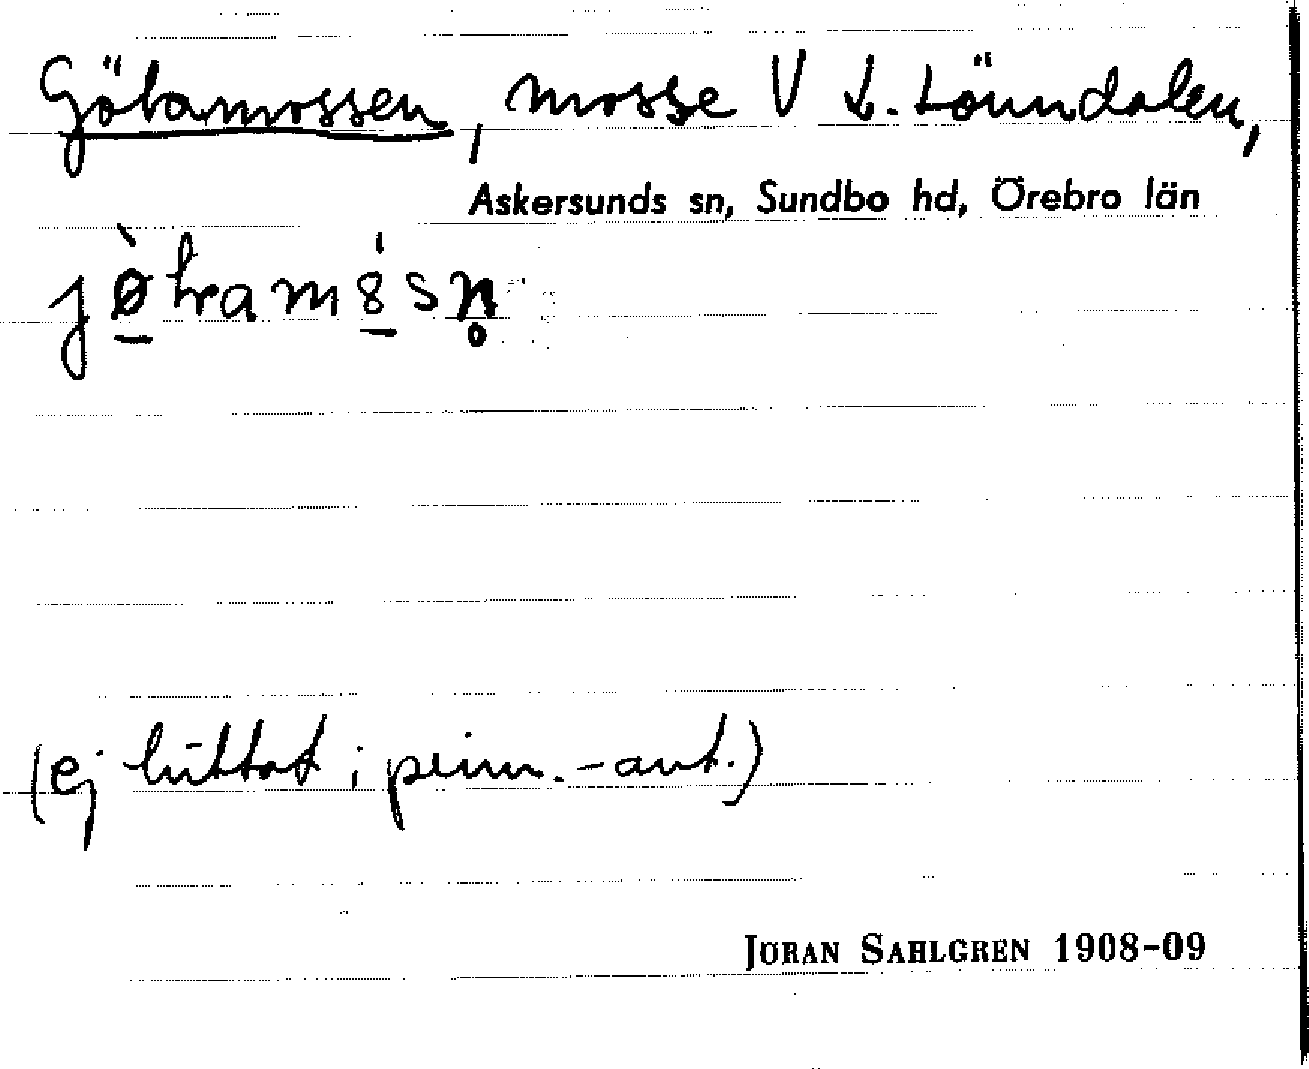 Götamossen, mosse V L. Lönndalen,
Askersunds sn, Sundbo hd, Örebro län
(ej hittat; -ant.)
JÖRAN SAHLGREN 1908-09